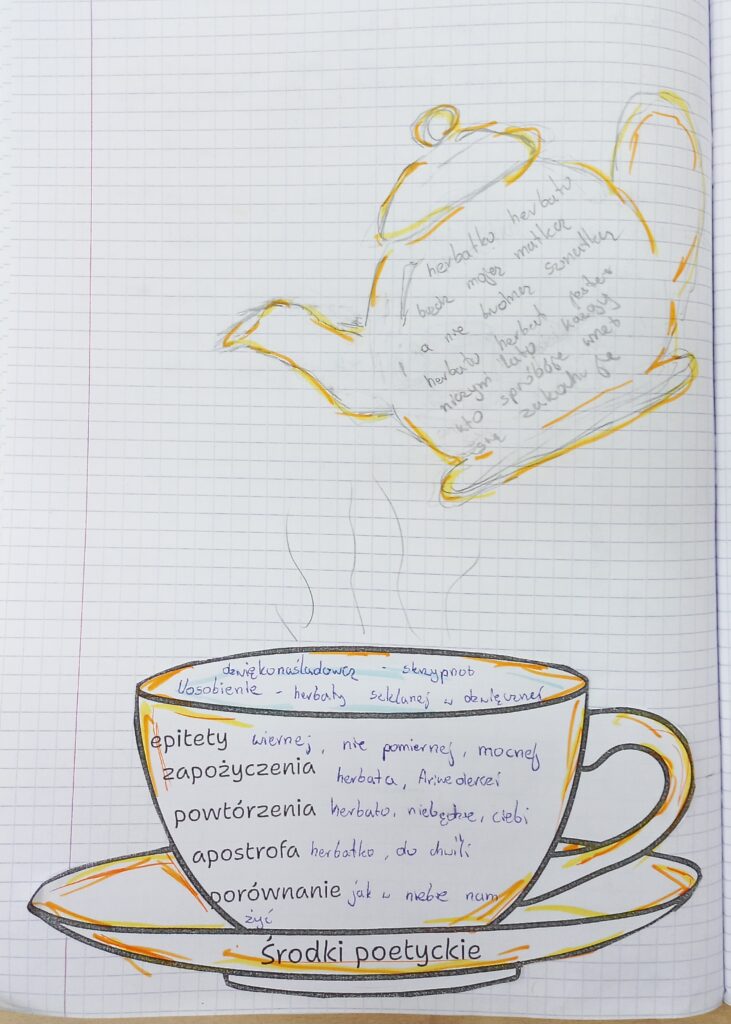 herbatko herbatko
bądź mojąż matkąż
a nie wolnąż szmatkąż
herbatu herbat jesteś
niczym lato każdy
kto spróbóje wnet
się zakocha
dźwiękonaśladowcz - skrzypnot
Uosobienie - herbaty szklanej w dźwięcznej
epitety wiernej, nie pomiernej, mocnej
zapożyczenia herbata, Arivederci
powtórzenia herbato, niebędzie, ciebi
apostrofa herbatko, do chwili
porównanie jak w niebie nam
żyć
Środki poetyckie